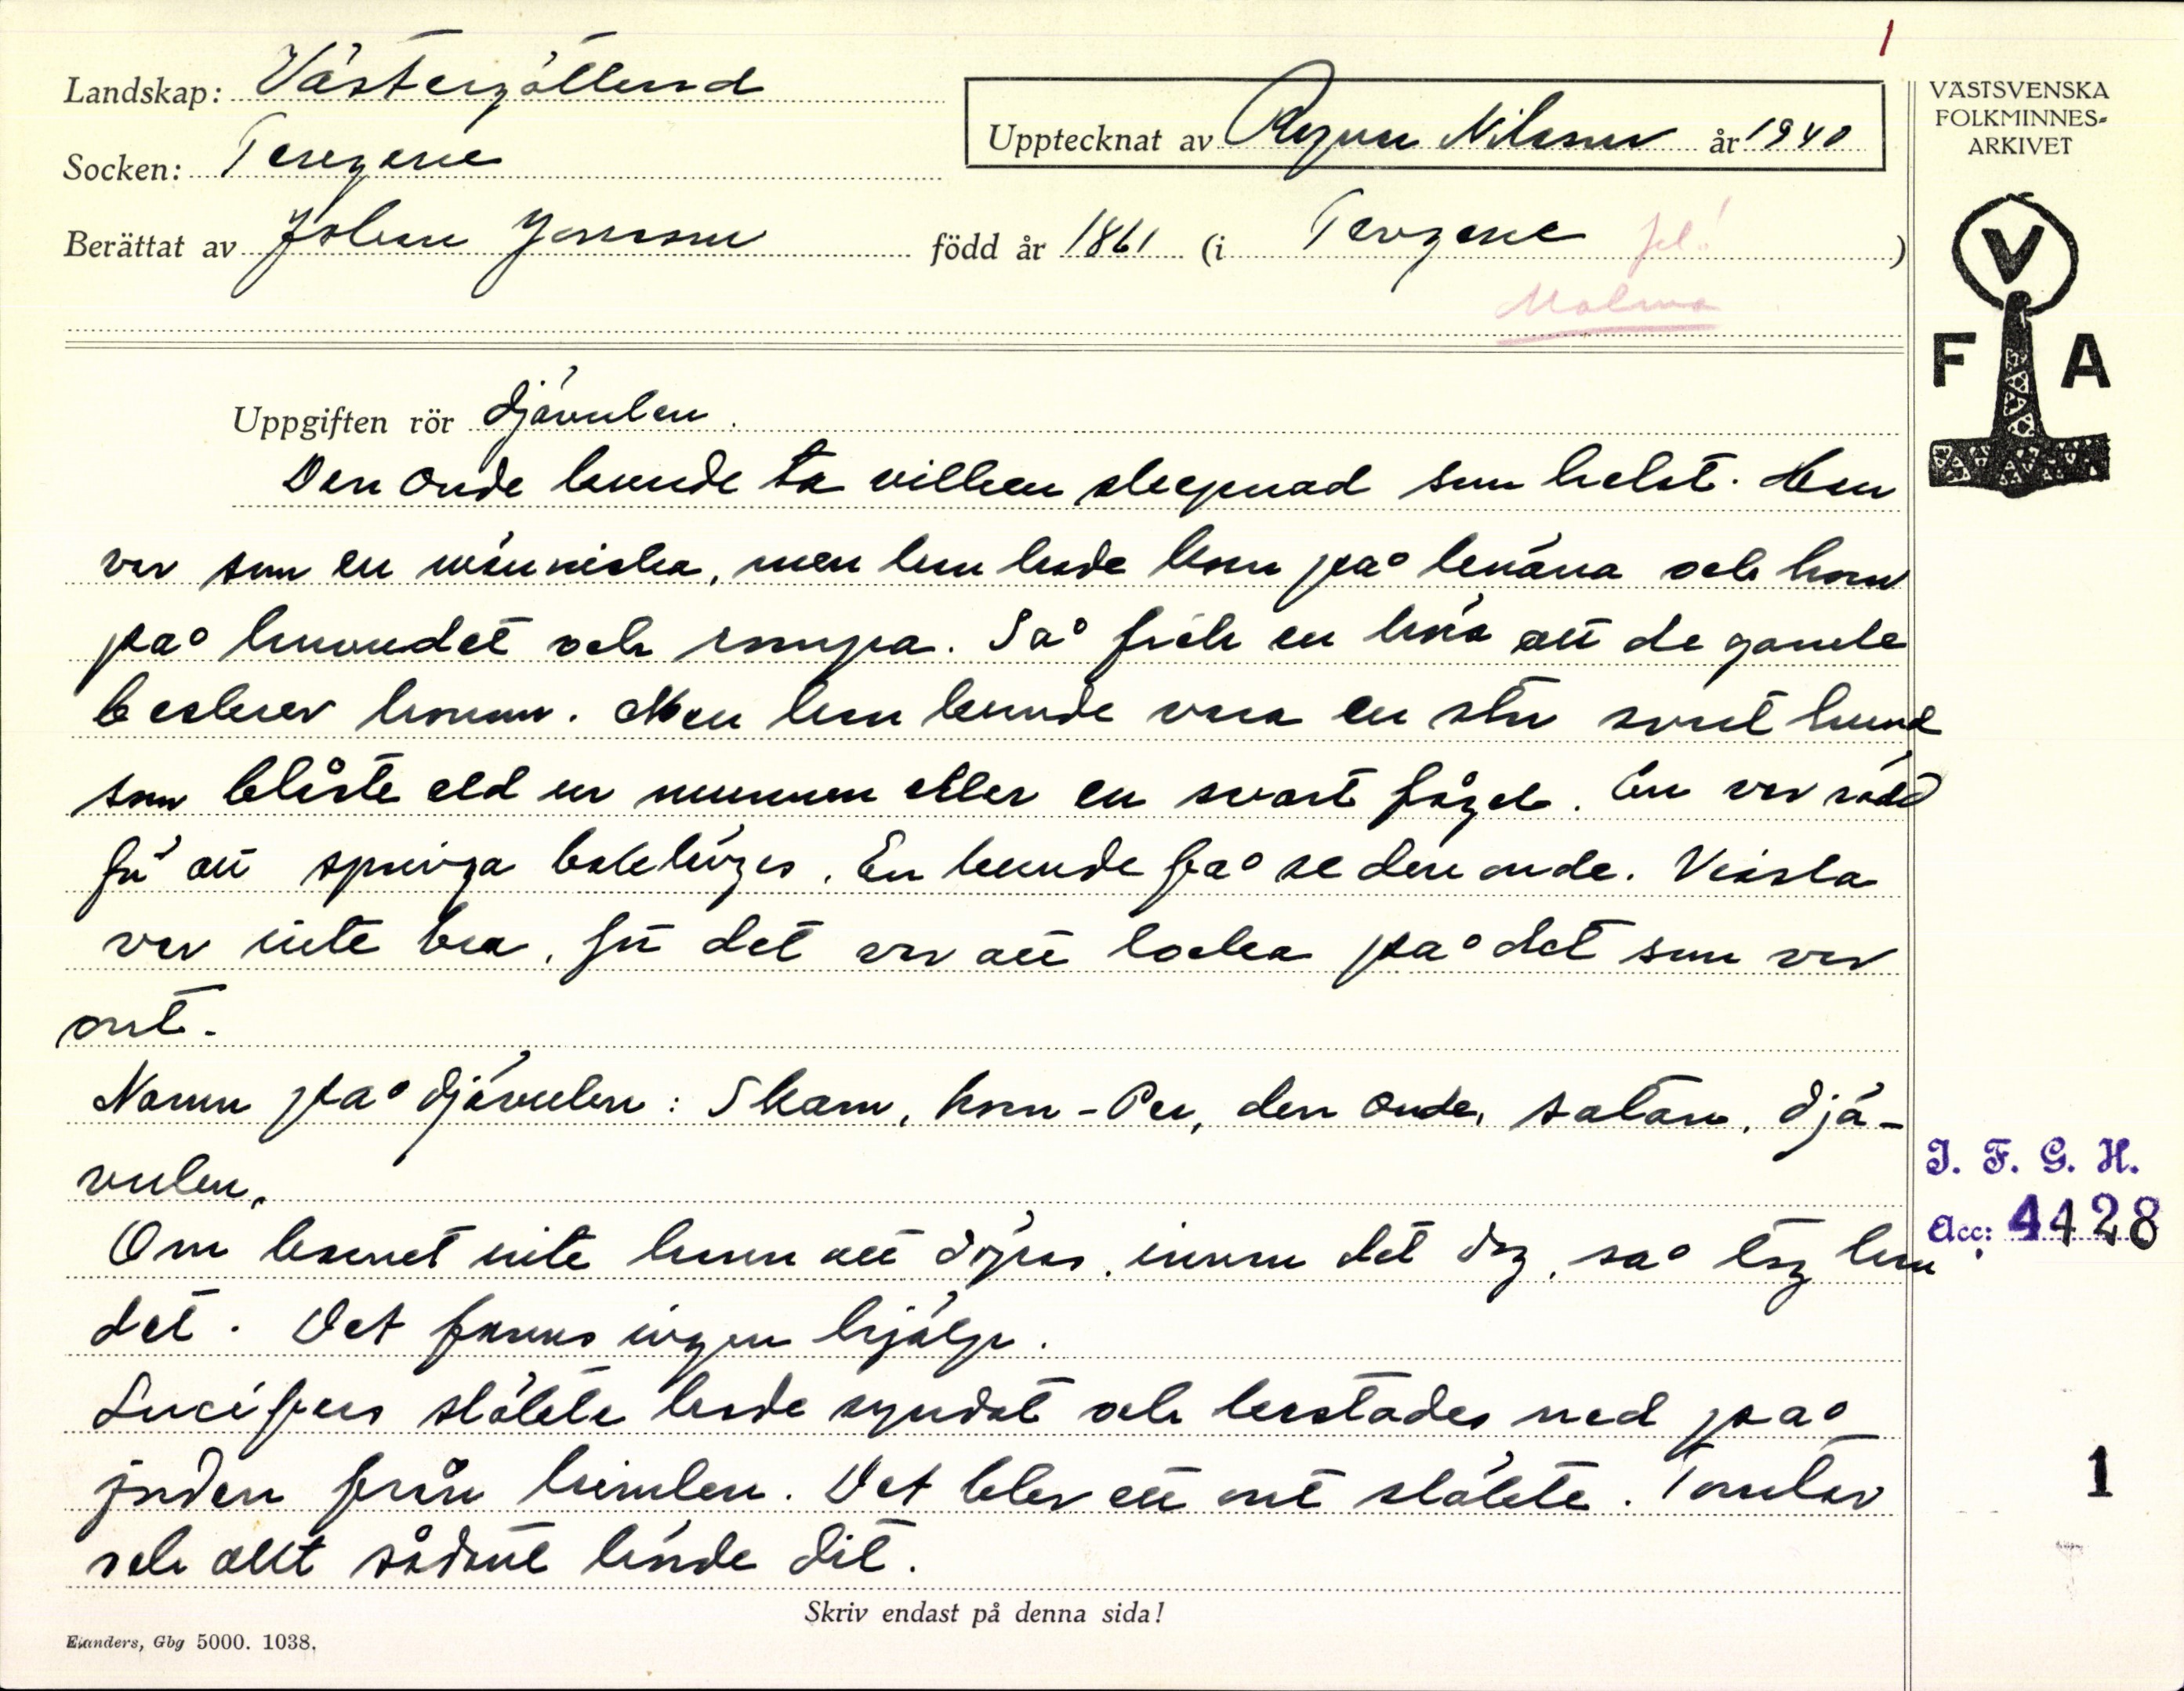 1
Landskap: Västergötland
Upptecknat av Ragnar Nilsson år 1940
VÄSTSVENSKA
FOLKMINNES-
ARKIVET
Socken: Tengene
Berättat av Johan Jonsson född år 1861 (i Tengene fel!)
Malma
V
F A
Uppgiften rör djävulen.
Den onde kunde ta vilken skepnad som helst. Han
var som en människa, men han hade horn på knäna och horn
på huvudet och rumpa. Så fick en höra att de gamle
beskrev honom. Men han kunde vara en stor svart hund
som blåste eld ur munnen eller en svart fågel. En var rädd
för att springa baklänges. En kunde få se den onde. Vissla
var inte bra, för det var att locka på det som var
ont.
Namn på djävulen: Skam, horn-Per, den onde, satan, djä-
vulen.
Om barnet inte hann att döpas, innan det dog, så tog han
det. Det fanns ingen hjälp.
Lucifers släkte hade syndat och kastades ned på
jorden från himlen. Det blev ett ont släkte. Tomtar
och allt sådant hörde dit.
I. F. G. H.
Acc: 4428
1
Skriv endast på denna sida!
Elanders, Gbg 5000. 1038.